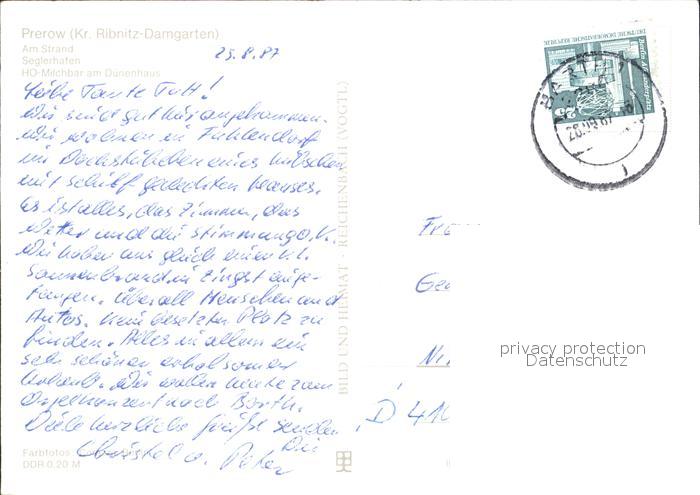 Prerow (Kr. Ribnitz-Damgarten)
Am Strand
Seglerhafen
HO-Milchbar am Dünenhaus
25.8.87
Liebe Tante Tutt!
Wir sind gut hier angekommen.
Wir wohnen in Fuhlendorf
im Dachstübchen eines hübschen
mit Schilf gedeckten Hauses.
Es ist alles, das Zimmer, das
Wetter und die Stimmung o.k.
Wir haben uns gleich einen kl.
Sonnenbrand in Zingst einge-
fangen. Überall Menschen und
Autos. Kein besetzter Platz zu
finden. Alles in allem ein
sehr schöner erholsamer
Urlaub. Wir wollen heute zum
Orgelkonzert nach Barth.
Viele herzliche Grüße senden
Dir
Christel u. Peter
Farbfotos
DDR 0,20 M
BILD UND HEIMAT · REICHENBACH (VOGTL)
DEUTSCHE DEMOKRATISCHE REPUBLIK
25
BARTH
D 410
privacy protection
Datenschutz